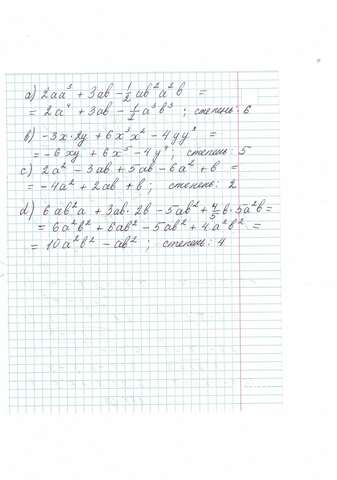 a) 2aa³ + 3ab − 1/2 ab²a²b =
= 2a⁴ + 3ab − 1/2 a³b³ ; степень: 6
b) −3x·2y + 6x³x² − 4yy³ =
= −6xy + 6x⁵ − 4y⁴; степень: 5
c) 2a² − 3ab + 5ab − 6a² + b =
= −4a² + 2ab + b; степень: 2
d) 6ab²a + 3ab·2b − 5ab² + 4/5 b·5a²b =
= 6a²b² + 6ab² − 5ab² + 4a²b² =
= 10a²b² − ab² ; степень: 4